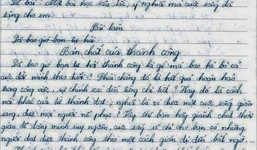 Đề bài: Một bài học sâu sắc, ý nghĩa mà cuộc sống đã
tặng cho em.
Bài làm
Đã bao giờ bạn tự hỏi
Bản chất của thành công
Đã bao giờ bạn tự hỏi thành công là gì mà bao kẻ bỏ cả
cuộc đời mình theo đuổi? Phải chăng đó là kết quả hoàn hảo
trong công việc, sự chính xác đến từng chi tiết? Hay đó là cách
nói khác của từ thành đạt, nghĩa là có được một cuộc sống giàu
sang, được mọi người nể phục? Hãy để bạn hãy dành chút thời gian
để lắng mình suy ngẫm, cuộc sống sẽ chỉ cho bạn có những
người đạt được thành công theo một cách giản dị đến bất ngờ.